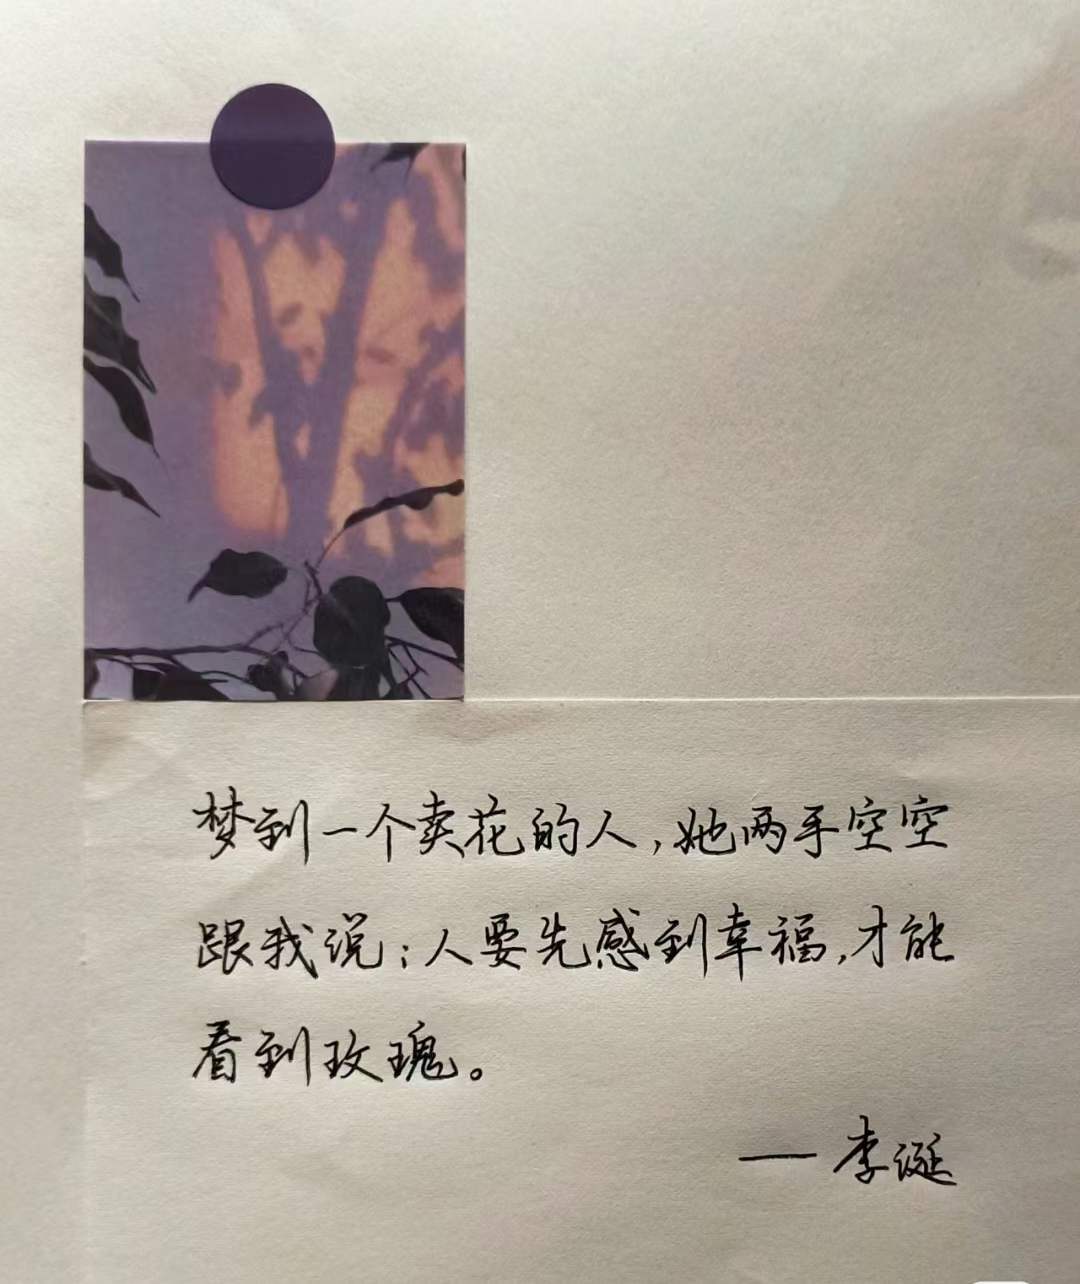 梦到一个卖花的人,她两手空空
跟我说:人要先感到幸福,才能
看到玫瑰。
—李诞